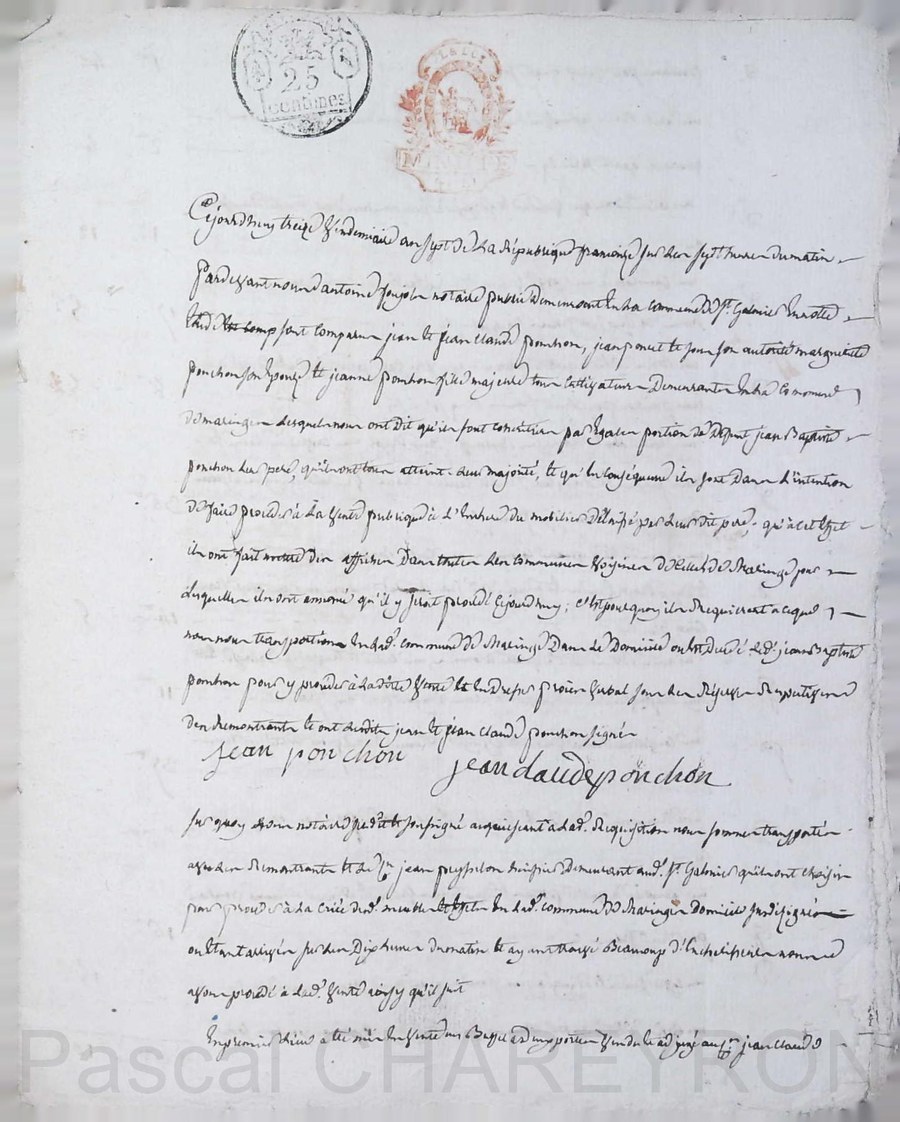 25
centimes
LA LOI
Cejourdhuy treize Vendemiaire an sept de la République françoise sur les sept heures du matin
Pardevant nous antoine notaire public demeurant en la commune de St. Galmier
sont comparu jean et jean Claude ponchon, jean poncet et sous son autorité margueritte
ponchon son épouze et jeanne ponchon fille majeure tous cultivateurs demeurants en la commune
de maringe lesquels nous ont dit qu'ils sont heritiers par égales portion de deffunt jean Baptiste
ponchon leur pere, qu'ils ont tous atteint leur majorité, et qu'en conséquence ils sont dans l'intention
de faire proceder à la vente publique à l'enchere du mobilier délaissé par leur dit pere, qu'à cet effet
ils ont fait mettre des affiches dans toutes les communes voisines de celle de Maringe par
lesquelles ils ont annoncé qu'il y seroit procédé cejourdhuy; c'est pourquoy ils requierent à ce que
nous nous transportions en lad. commune de Maringe dans le domicile ou est decedé led. jean Baptiste
ponchon pour y proceder à ladite vente et en dresser procès verbal sous les réserves respectives
des remontrants et ont lesdits jean et jean Claude ponchon signé
jean ponchon jean claude ponchon
sur quoy nous notaire susdit et soussigné acquiescant à lad. réquisition nous sommes transportés
avec les remontrants et le cn. jean huissier demeurant aud. St. Galmier qu'ils ont choisi
pour proceder à la criée desd. meubles et effets en lad. commune de Maringe domicile susdésigné
ou étant arrivés sur les dix heures du matin et ayant trouvé beaucoup d'encherisseurs nous
avons procédé à lad. vente ainsy qu'il suit
En premier lieu a été mis en vente un Buffet vendu et adjugé au cn. jean Claude
Pascal CHAREYRON